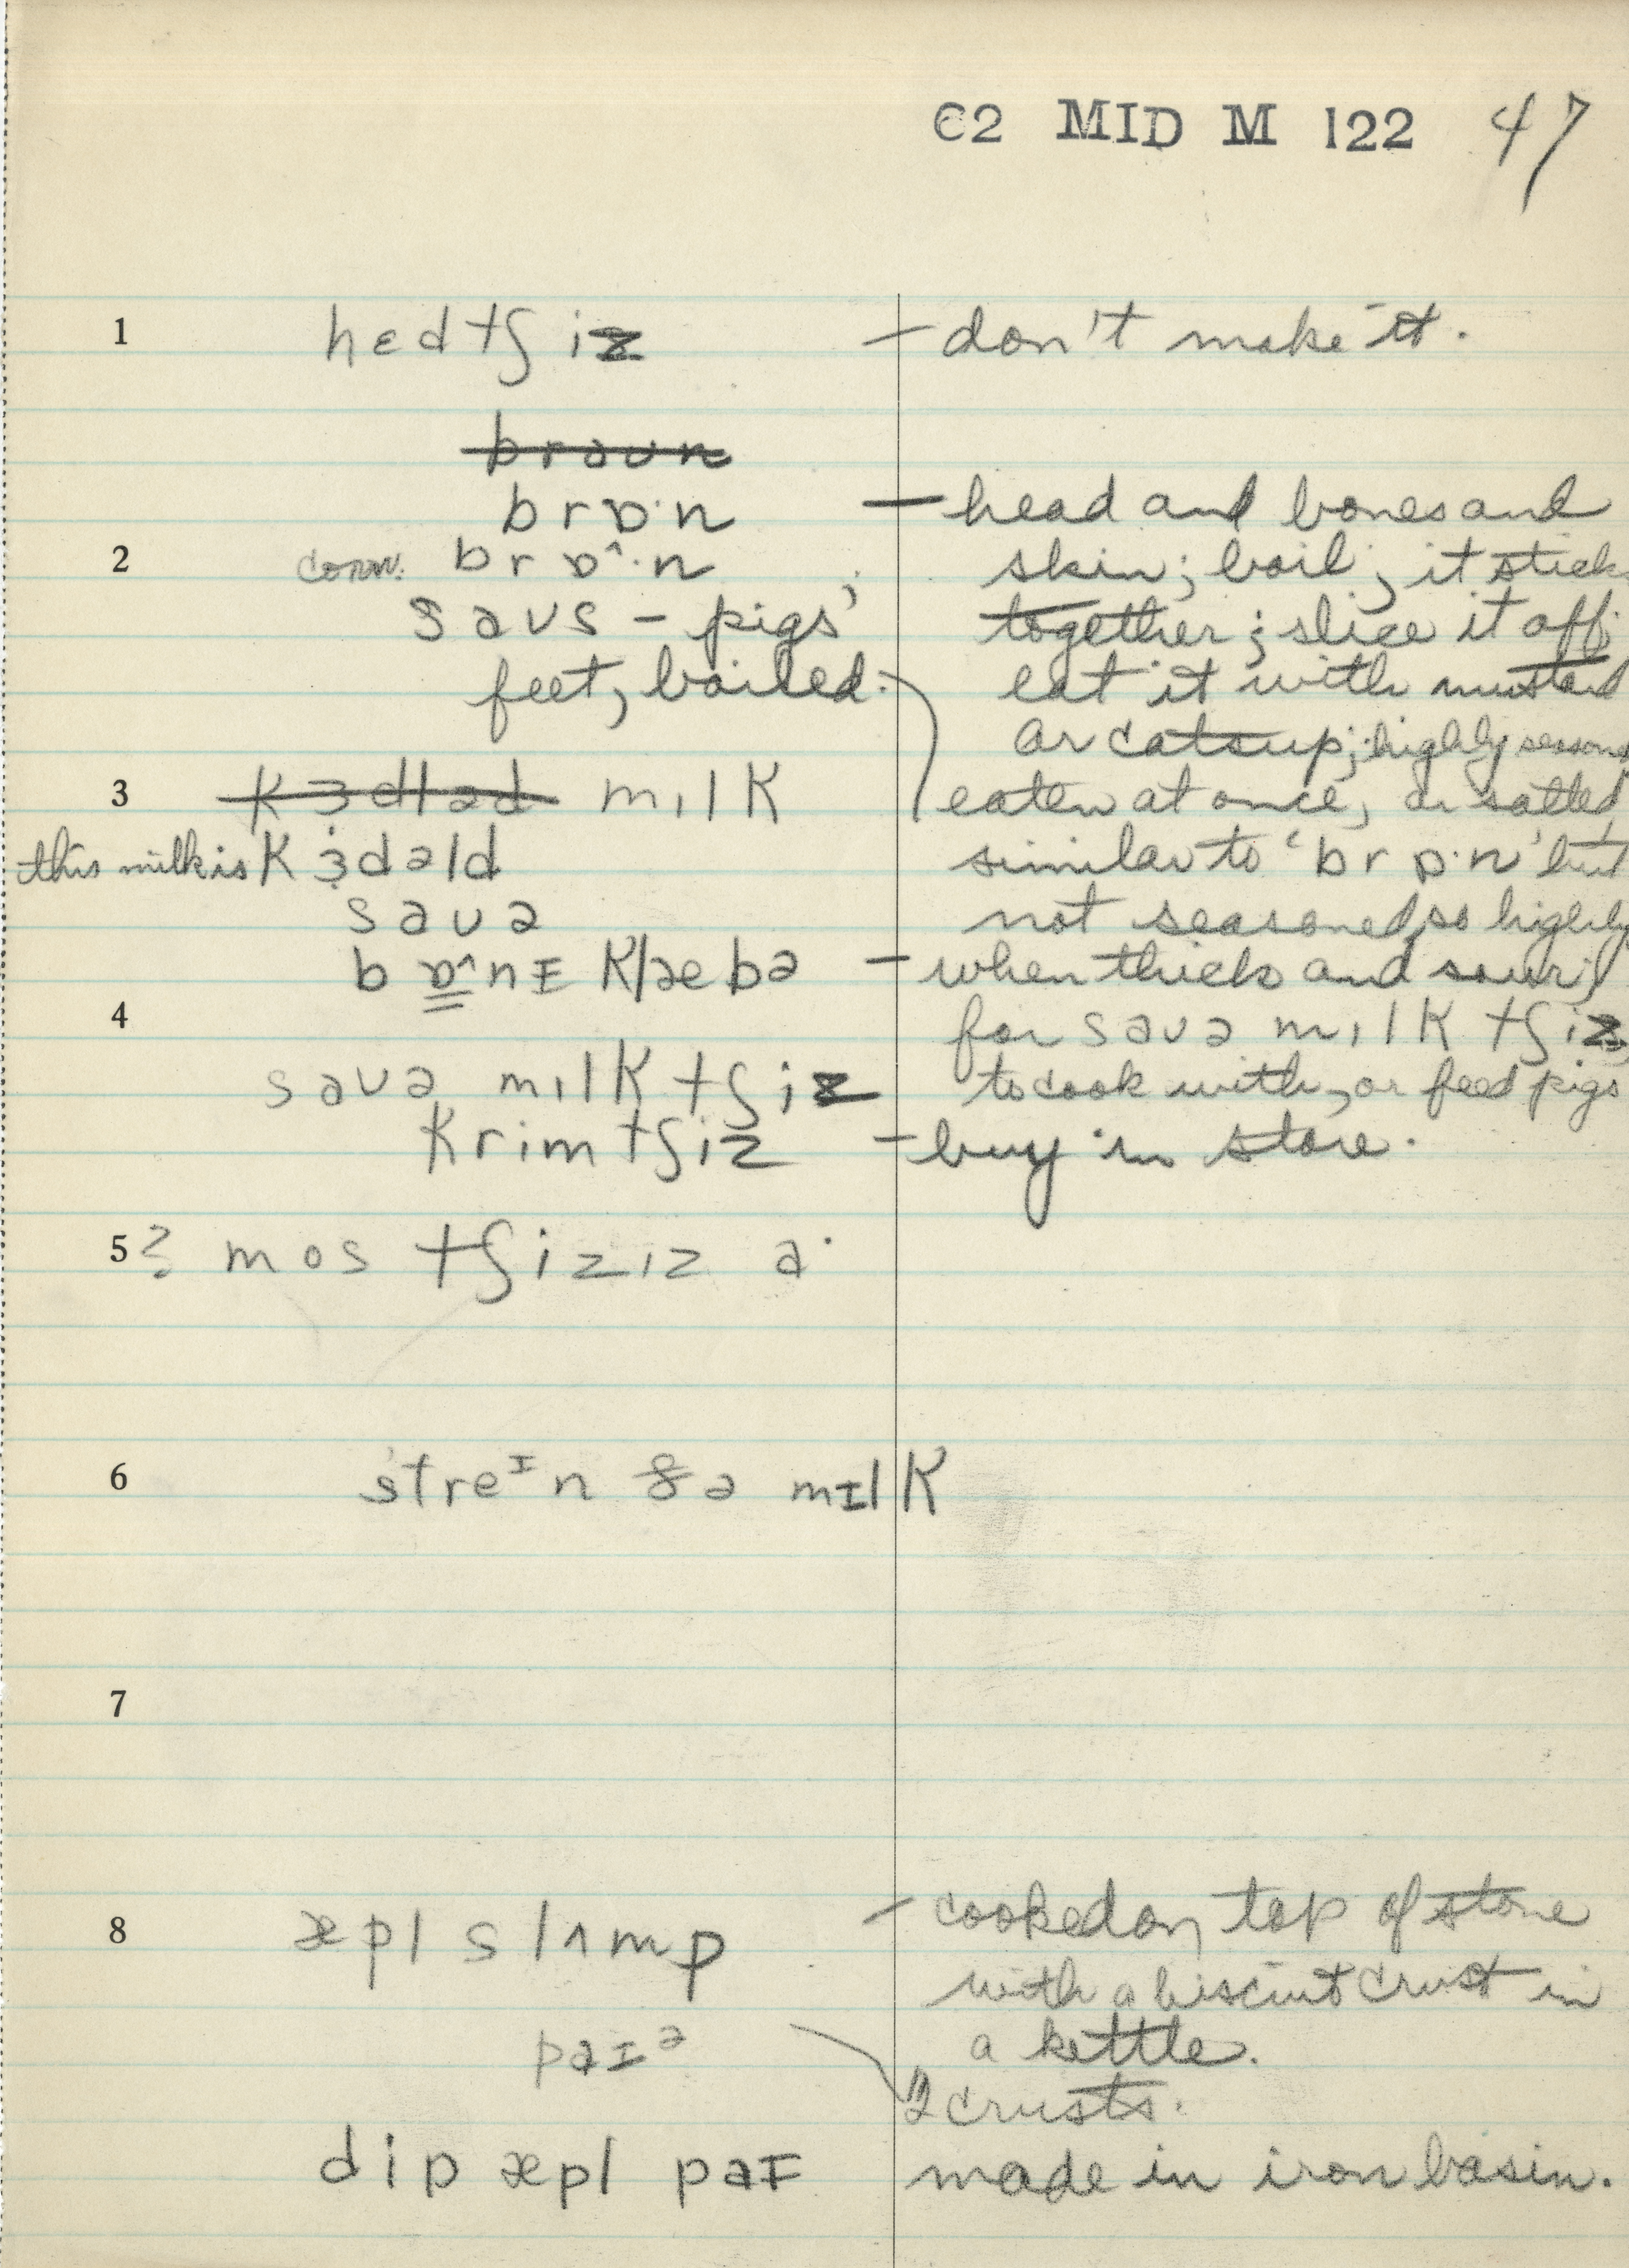 C2 MID M 122 47
1 hɛdtʃiz – don't make it.
braun
brɒ·n – head and bones and
2 conv. brɒ^·n skin; boil; it stick
saus – pigs' together; slice it off;
feet, boiled. eat it with mustard
or catsup; highly season
3 kɜdləd mılk eaten at once, or salted,
this milk is kɜdəld similar to 'brɒ·n' but
sauə not seasoned so highly
bɒ^nɪ klæbə – when thick and sour;
4 for sauə mılk tʃiz,
sauə mılk tʃiz to cook with, or feed pigs
krimtʃiz – buy in store.
5 ? mos tʃizız a·
6 streᶦn ðə mɪlk
7
8 æpl slʌmp – cooked on top of stove
with a biscuit crust in
a kettle.
paɪᵊ 2 crusts.
dip æpl paɪ made in iron basin.